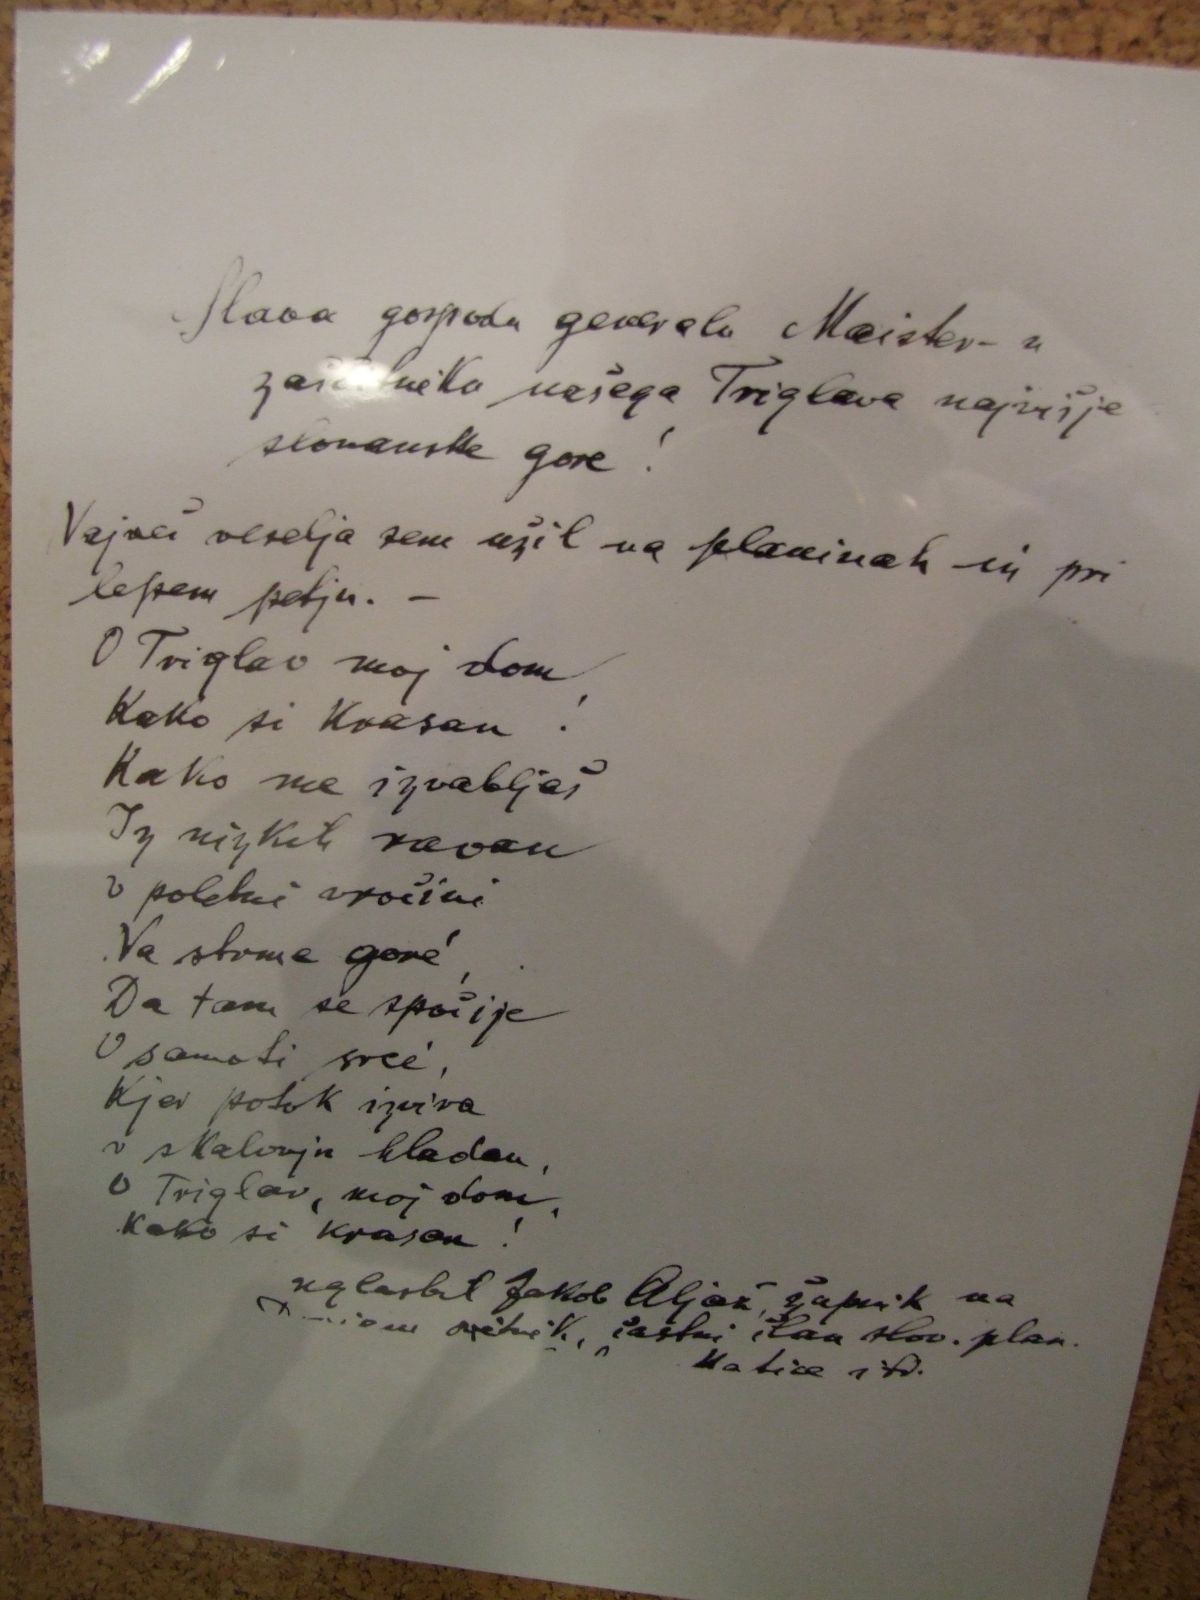 Slava gospodu generalu Maister-u
zaščitniku našega Triglava najvišje
slovanske gore!
Največ veselja sem užil na planinah in pri
lepem petju. —
O Triglav moj dom
Kako si krasan!
Kako me izvabljaš
Iz nizkih ravan
v poletni vročini
Na strme goré,
Da tam se spočije
V samoti srcé,
Kjer potok izvira
v skalovju hladan,
O Triglav, moj dom,
kako si krasan!
uglasbil Jakob Aljaž, župnik na
častni član slov. plan.
Matice itd.